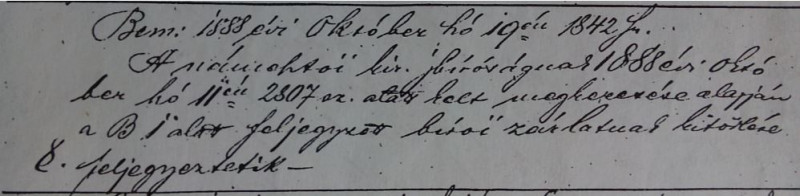 Bem: 1888 évi Október hó 19én 1842 sz.
A kir. jbiróságnak 1888 évi októ
ber hó 11én 2807 sz. alatt kelt megkeresése alapján
a B 1 alatt feljegyzett birói zárlatnak kitörlése
8. feljegyeztetik –